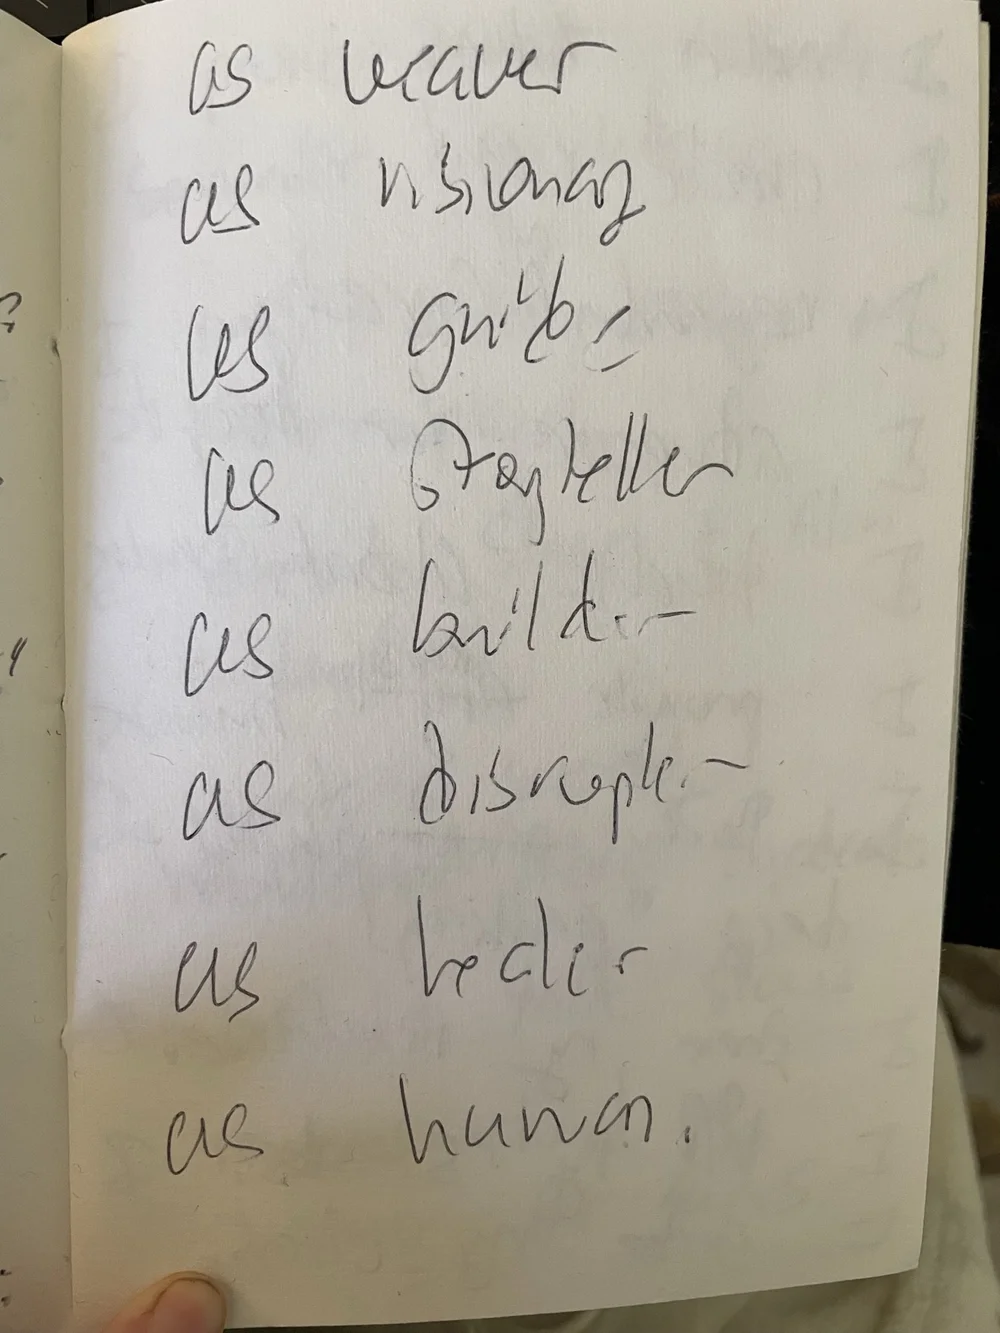 as weaver
as visionary
as guide
as storyteller
as builder
as disrupter
as healer
as human.